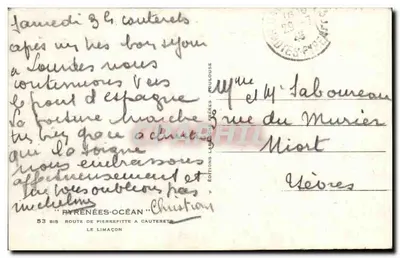 Samedi 34 cauterets
après un tres bon sejour
a Lourdes nous
continuons vers
le pont d'espagne
La voiture marche
tres bien grace a
que l'a soigné
nous embrassons
affectueusement et
vous oublions pas
micheline
Christian
Mme
et Mr Saboureau
rue du Murier
Niort
Sèvres
HAUTES-PYRÉNÉES
"PYRÉNÉES-OCÉAN"
83 BIS ROUTE DE PIERREFITTE A CAUTERETS
LE LIMAÇON